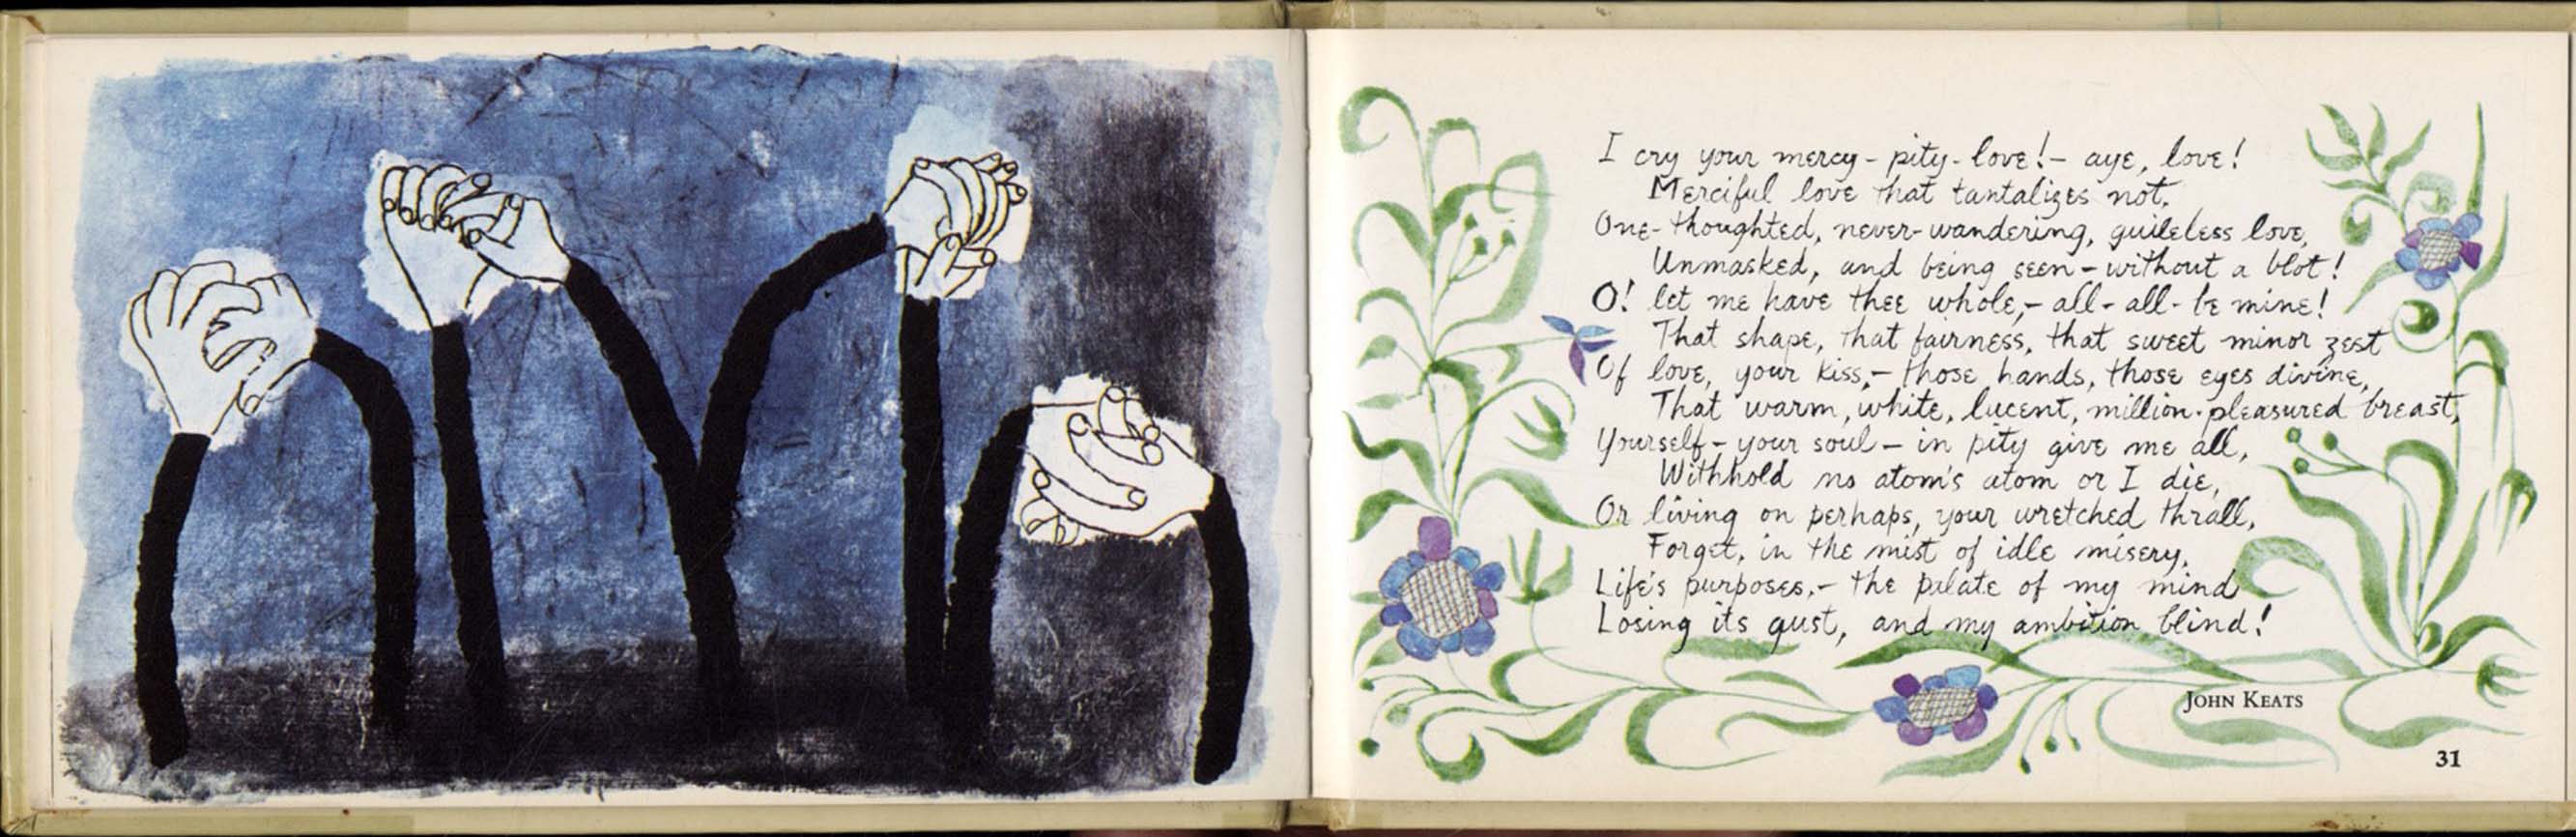 I cry your mercy - pity - love! - aye, love!
Merciful love that tantalizes not,
One-thoughted, never-wandering, guileless love,
Unmasked, and being seen - without a blot!
O! let me have thee whole, - all - all - be mine!
That shape, that fairness, that sweet minor zest
Of love, your kiss, - those hands, those eyes divine,
That warm, white, lucent, million-pleasured breast,
Yourself - your soul - in pity give me all,
Withhold no atom's atom or I die,
Or living on perhaps, your wretched thrall,
Forget, in the mist of idle misery,
Life's purposes, - the palate of my mind
Losing its gust, and my ambition blind!
JOHN KEATS
31